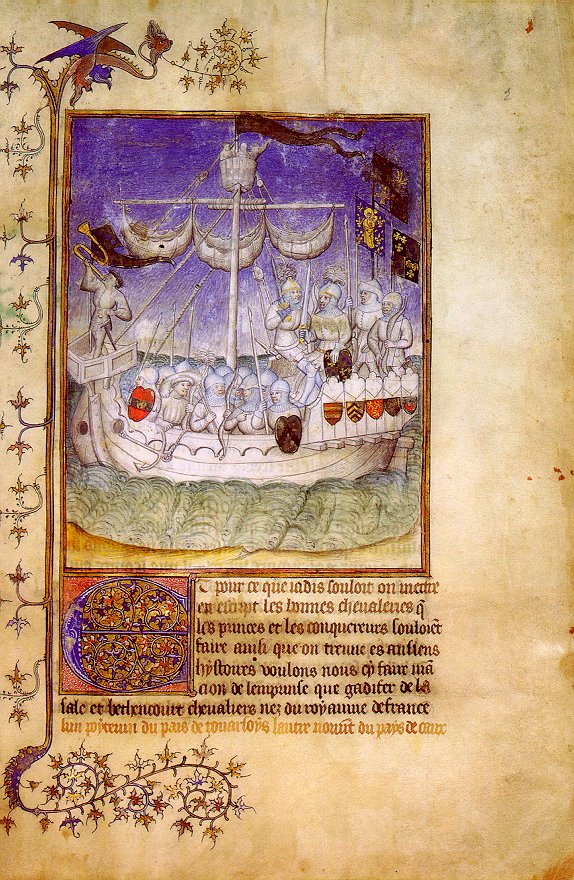 Et pour ce que iadis souloit on mectre
en escript les bonnes cheualeries q̄
les princes et les conquereurs souloiēt
faire ainsi que on treuue es ansiens
hystoires voulons nous cy faire mā
cion de lemprinse que gadifer de la
sale et bethencourt cheualiers nez du royaume de france
lun poyteuin du pais de touarloys lautre normt du pays de caux